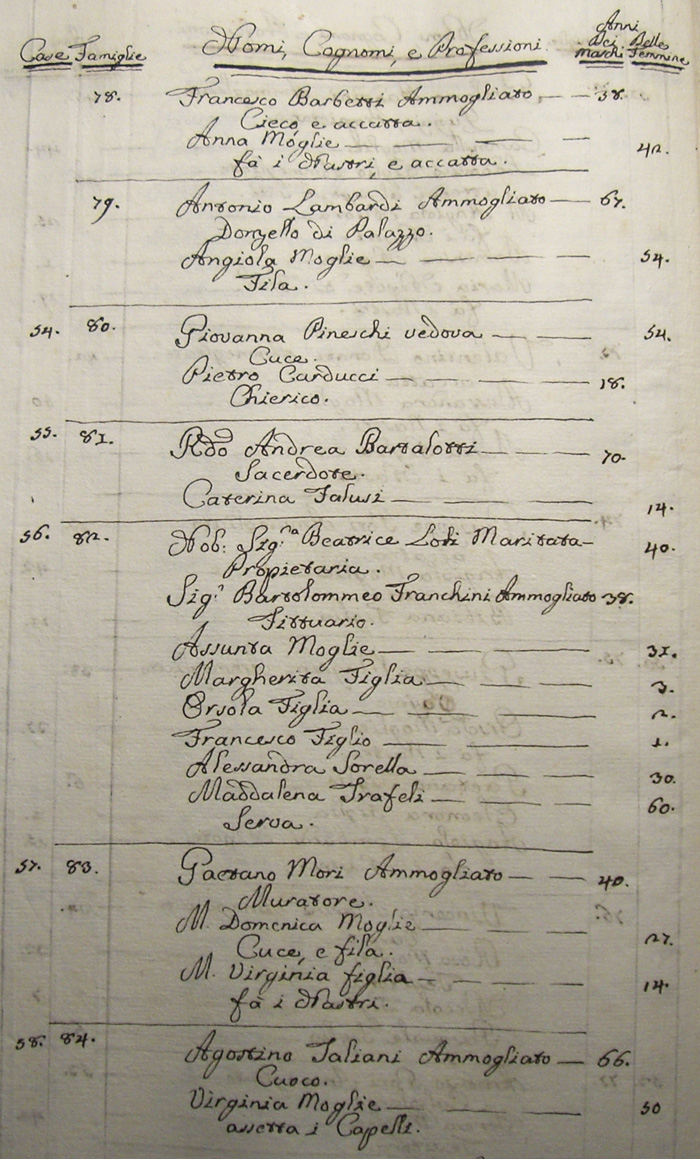 Case Famiglie Nomi, Cognomi, e Professioni. Anni dei Maschi Delle Femmine
78. Francesco Barbetti Ammogliato — 58.
Cieco e accatta.
Anna Moglie — 42.
fà i Nastri, e accatta.
79. Antonio Lambardi Ammogliato — 67.
Donzello di Palazzo.
Angiola Moglie — 54.
Fila.
54. 80. Giovanna Pineschi vedova — 54.
Cuce.
Pietro Carducci — 18.
Chierico.
55. 81. Rdo Andrea Bartalotti — 70.
Sacerdote.
Caterina Talusi — 14.
56. 82. Nob: Sig.ra Beatrice Loti Maritata — 40.
Propietaria.
Sig.r Bartolommeo Franchini Ammogliato 38.
Fittuario.
Assunta Moglie — 31.
Margherita Figlia — 3.
Orsola Figlia — 2.
Francesco Figlio — 1.
Alessandra Sorella — 30.
Maddalena Trafeli — 60.
Serva.
57. 83. Gaetano Mori Ammogliato — 40.
Muratore.
M. Domenica Moglie — 27.
Cuce, e fila.
M. Virginia figlia — 14.
fà i Nastri.
58. 84. Agostino Taliani Ammogliato — 66.
Cuoco.
Virginia Moglie — 50
assetta i Capelli.